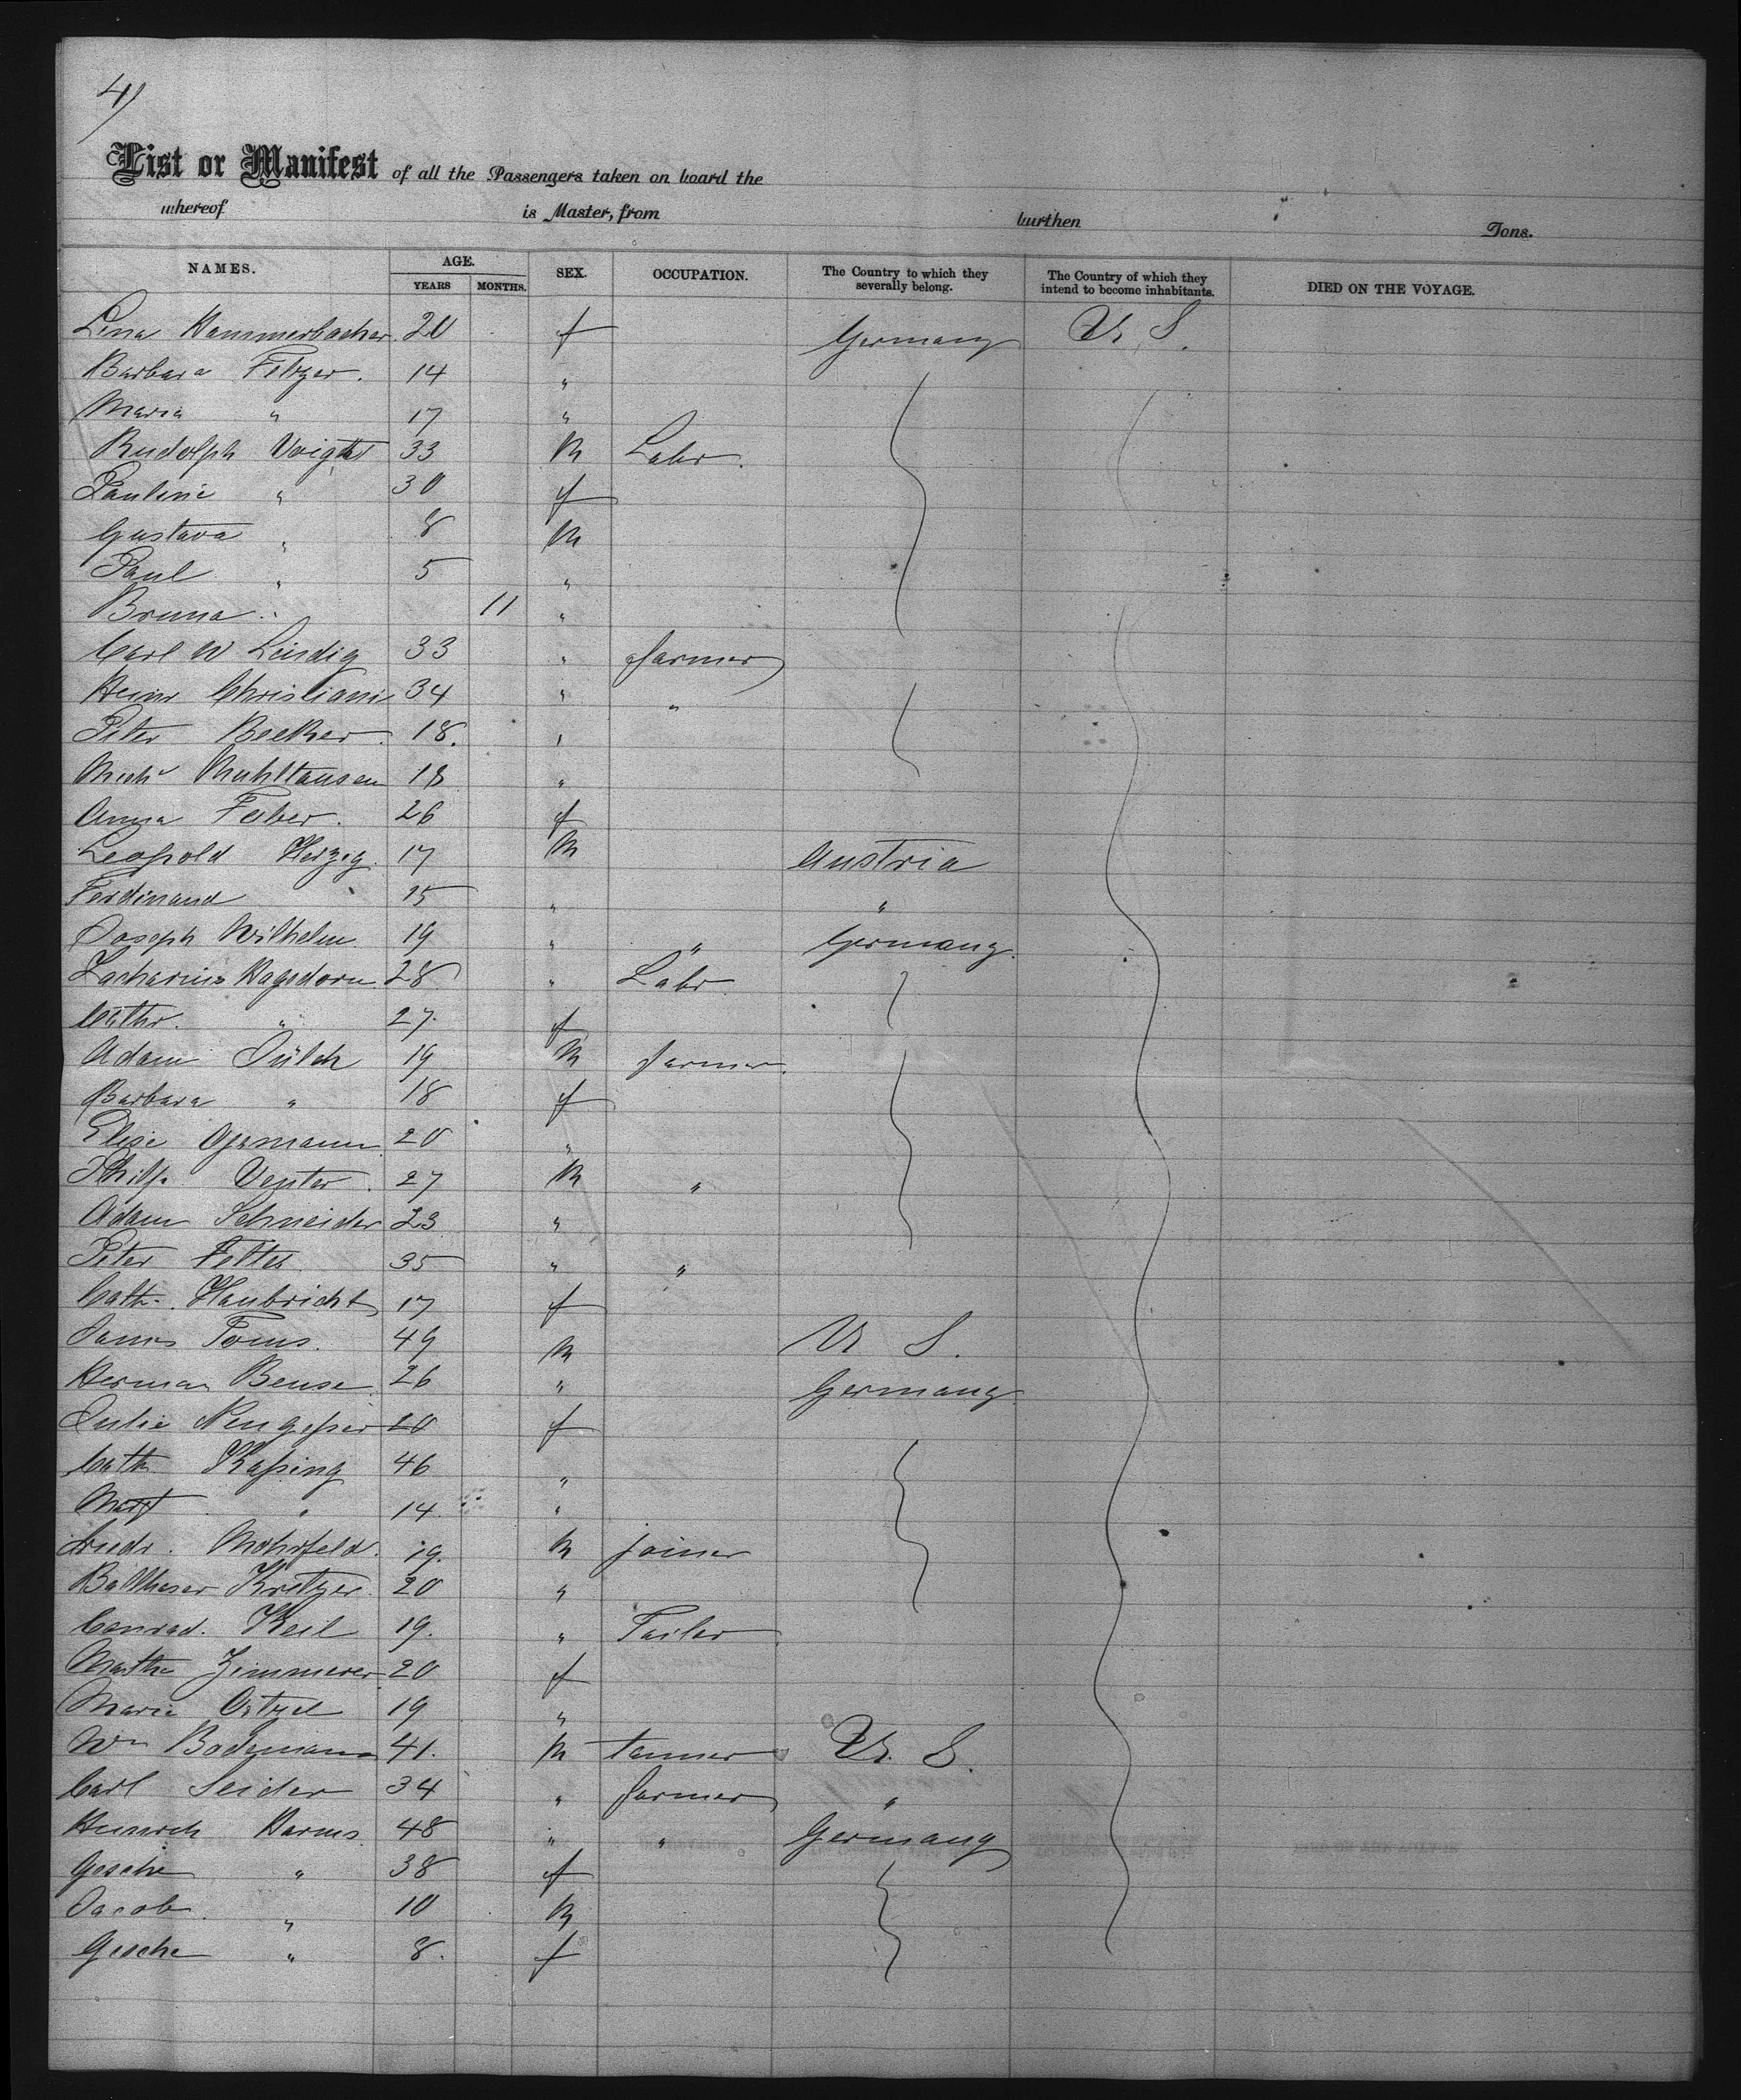 4)
List or Manifest of all the Passengers taken on board the
whereof is Master, from burthen Tons.
NAMES. AGE. YEARS MONTHS. SEX. OCCUPATION. The Country to which they severally belong. The Country of which they intend to become inhabitants. DIED ON THE VOYAGE.
Lina Hammerbacher 20 f Germany U. S.
Barbara Feltzer. 14 "
Maria " 17 "
Rudolph Voight 33 M Labr.
Pauline " 30 f
Gustava " 8 M
Paul " 5 "
Bruna " 11 "
Carl W Lindig 33 " farmer
Heinr Christiani 34 " "
Peter Becker 18. "
Mich Muhlhausen 18 "
Anna Faber. 26 f
Leopold Herzog 17 M Austria
Ferdinand " 15 " "
Joseph Wilhelm 19 " " Germany
Zacharius Hagedorn 28 " Labr
Cathr. " 27. f
Adam Jülch 19 M farmer
Barbara " 18 f
Elise 20 "
Philp. Venter. 27 M "
Adam Schneider 23 "
Peter Feltes 35 " "
Cath. Haubricht 17 f
James Toms. 49 M U S.
Herman Bense 26 " Germany
Julie 20 f
Cath Kaping 46 "
" 14 "
Friedr. Mohrfeld. 19. M joiner
Balthaser Kritzer 20 "
Conrad. Keil 19. " Tailor
Martha Zimmerer 20 f
Marie 19 "
Wm Bodemann 41. M tanner U. S.
Carl Seider 34 " farmer "
Heinrich Harms. 48 " " Germany
Gesche " 38 f
Jacob " 10 M
Gesche " 8. f